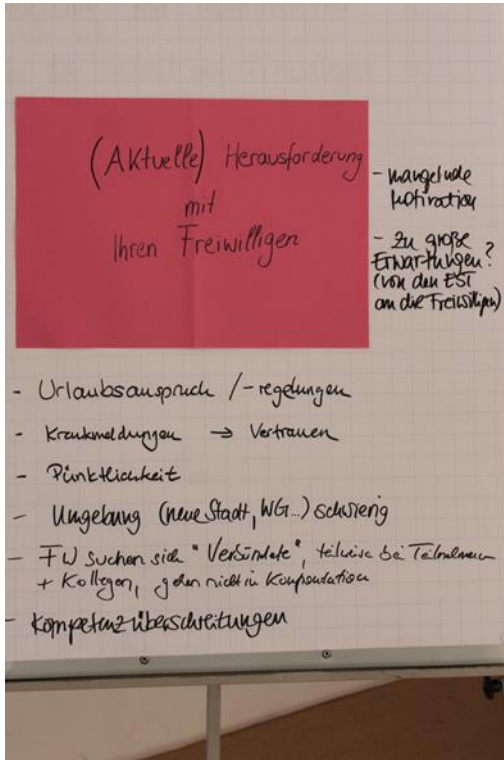 (Aktuelle) Herausforderung
mit
Ihren Freiwilligen
- mangelnde
Motivation
- Zu große
Erwartungen?
(von den EST
an die Freiwilligen)
- Urlaubsanspruch / -regelungen
- Krankmeldungen → Vertrauen
- Pünktlichkeit
- Umgebung (neue Stadt, WG...) schwierig
- FW suchen sich "Verbündete", teilweise bei Teilnehmern
+ Kollegen, gehen nicht in
- Kompetenzüberschreitungen